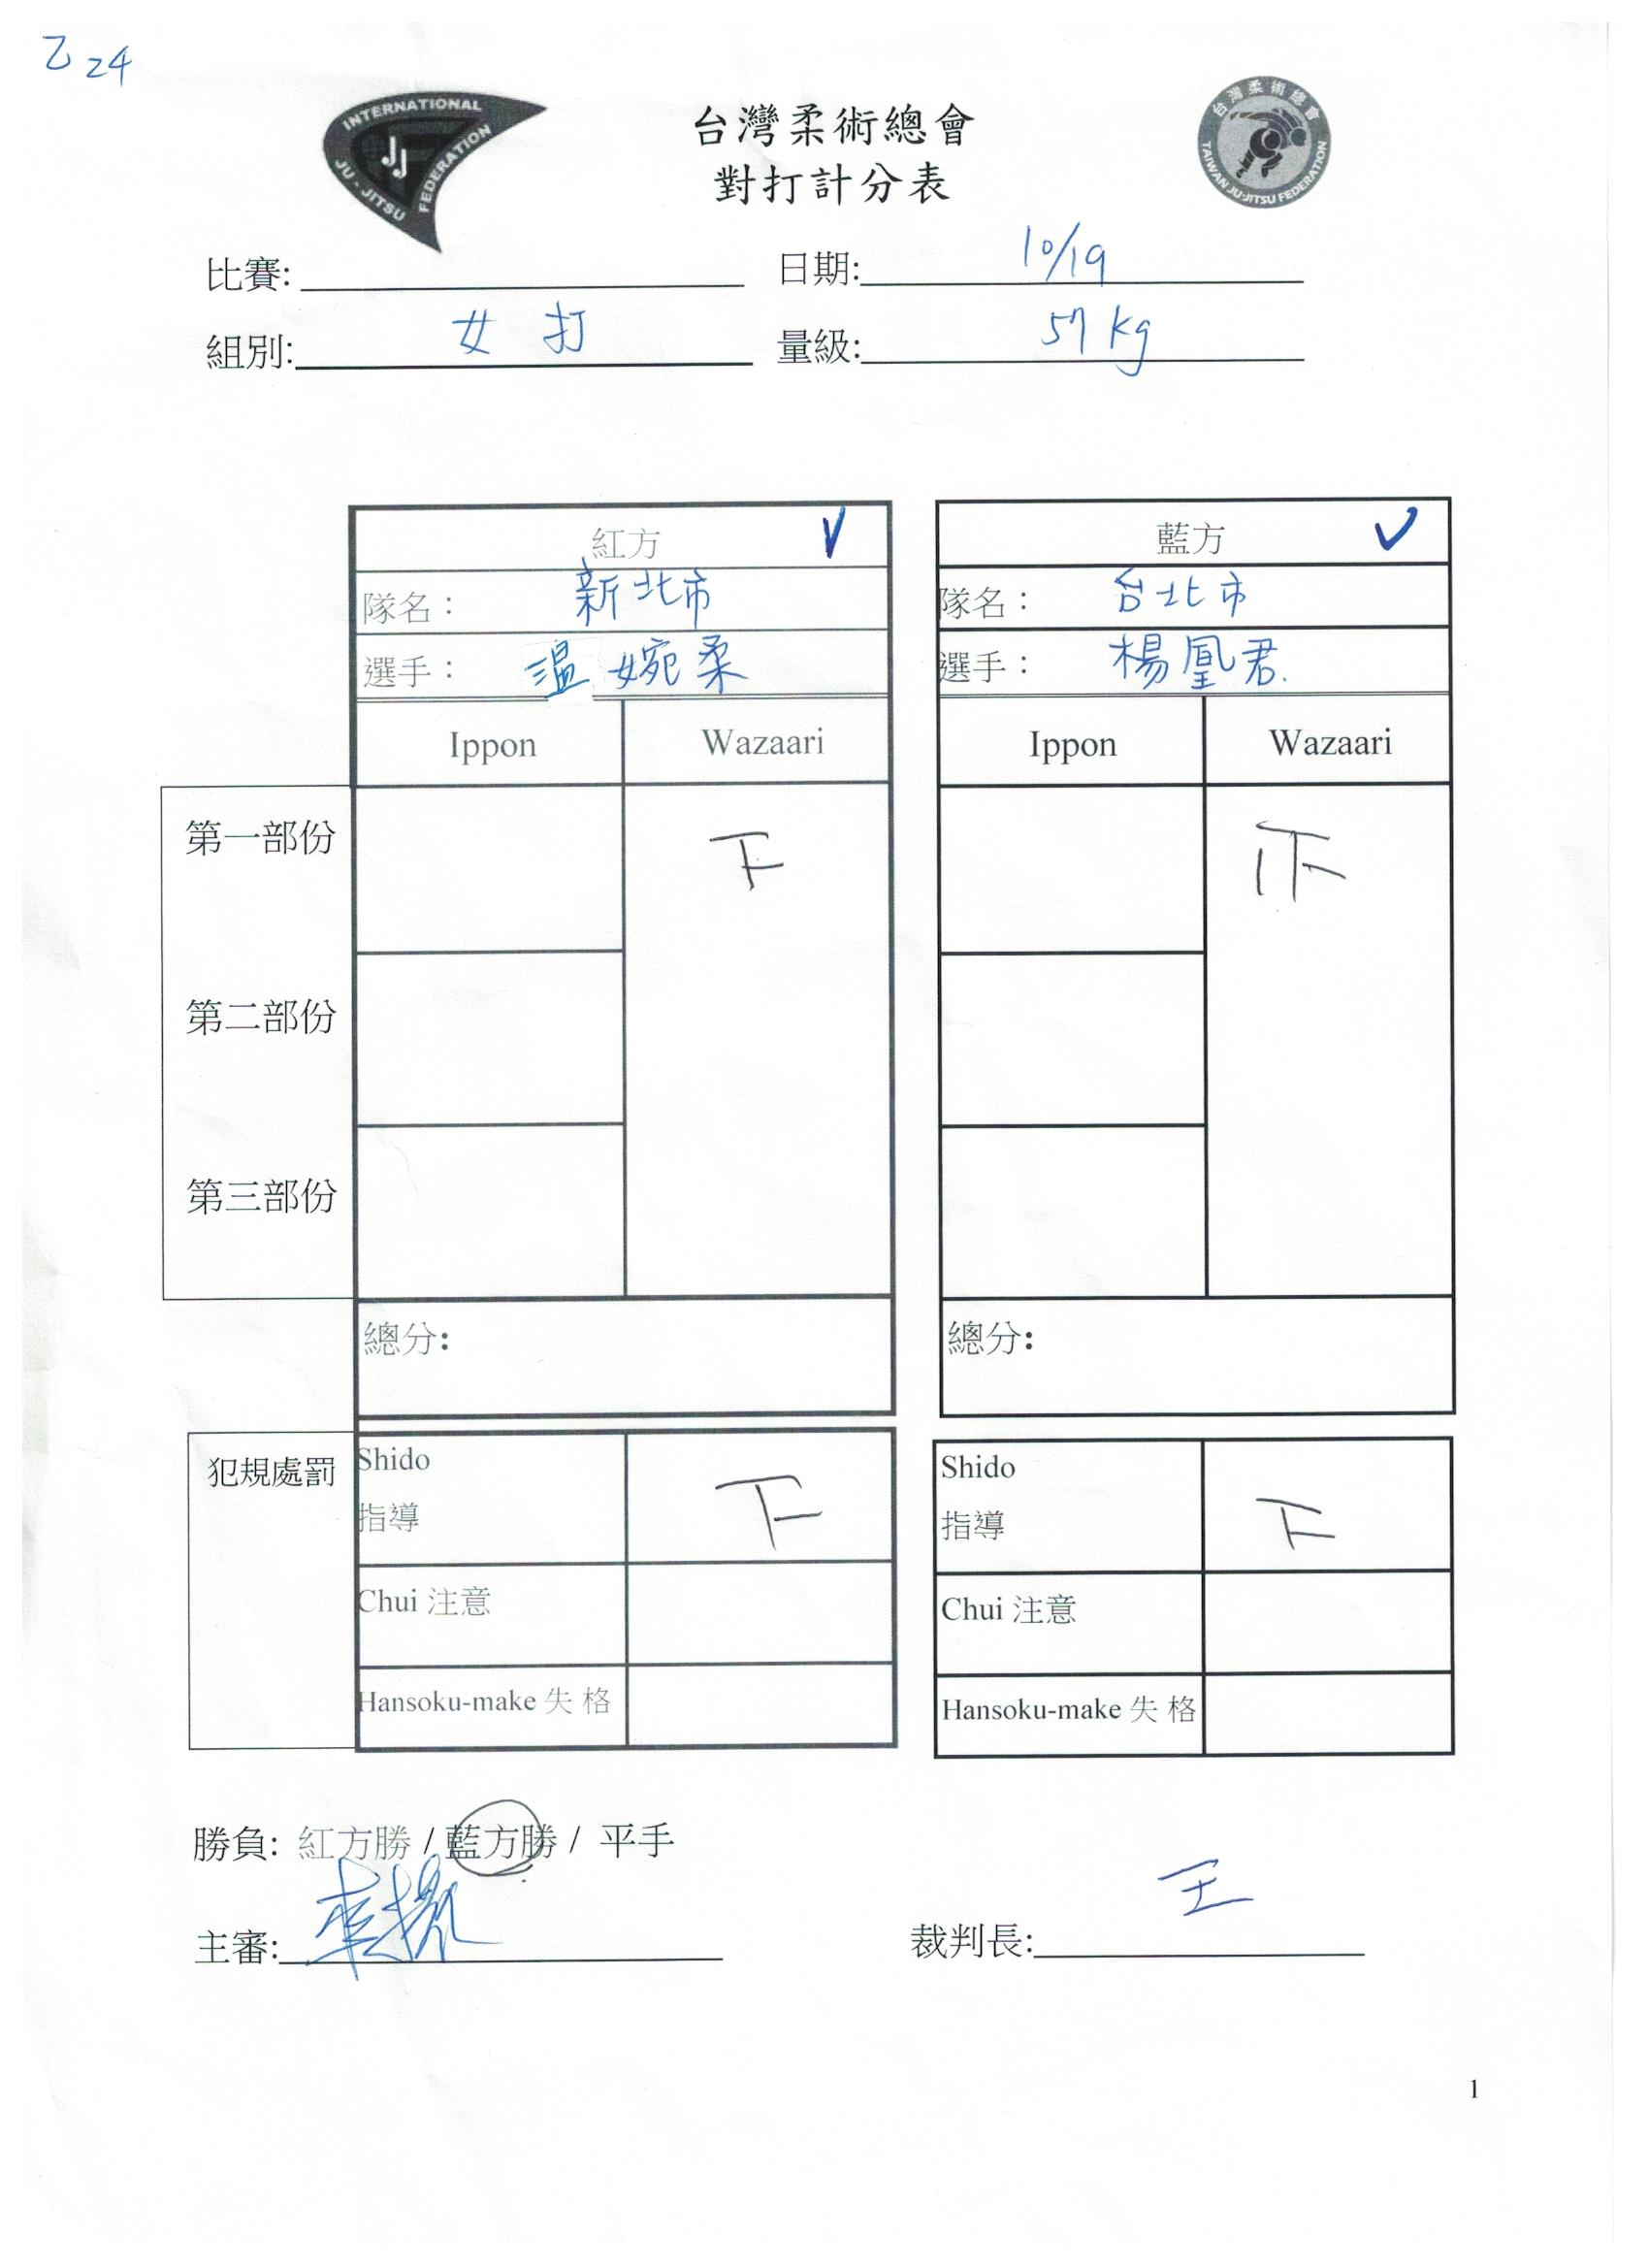 乙 24
INTERNATIONAL JU-JITSU FEDERATION
JJ
台灣柔術總會
TAIWAN JU-JITSU FEDERATION
台灣柔術總會
對打計分表
比賽: 日期: 10/19
組別: 女 打 量級: 57 kg
紅方 ✓ 藍方 ✓
隊名： 新北市 隊名： 台北市
選手： 溫婉柔 選手： 楊凰君
Ippon Wazaari Ippon Wazaari
第一部份
第二部份
第三部份
總分: 總分:
犯規處罰 Shido 指導 Shido 指導
Chui 注意 Chui 注意
Hansoku-make 失 格 Hansoku-make 失 格
勝負: 紅方勝 / 藍方勝 / 平手
主審: 裁判長: 王
1